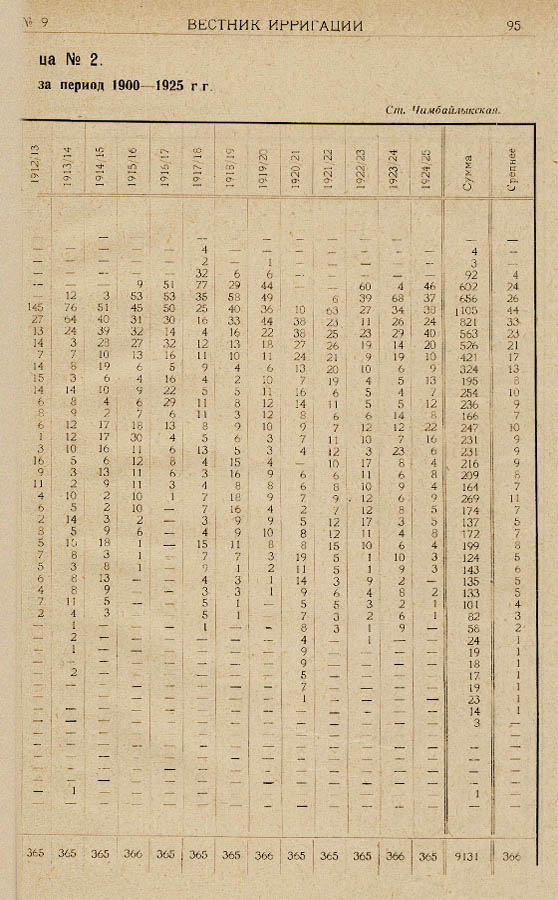 № 9 ВЕСТНИК ИРРИГАЦИИ 95
ца № 2.
за период 1900—1925 г.г.
Ст. Чимбайлыкская.
1912/13 1913/14 1914/15 1915/16 1916/17 1917/18 1918/19 1919/20 1920/21 1921/22 1922/23 1923/24 1924/25 Сумма Среднее
— — — — — — — — — — — — — — —
— — — — — 4 — — — — — — — 4 —
— — — — — 2 — 1 — — — — — 3 —
— — — — — 32 6 6 — — — — — 92 4
— — — 9 51 77 29 44 — — 60 4 46 602 24
— 12 3 53 53 35 58 49 — 6 39 68 37 656 26
145 76 51 45 50 25 40 36 10 63 27 34 38 1105 44
27 64 40 31 30 16 33 44 38 23 11 26 24 821 33
13 24 39 32 14 4 16 22 38 25 23 29 40 563 23
14 3 28 27 32 12 13 18 27 26 19 14 20 526 21
7 7 10 13 16 11 10 11 24 21 9 19 10 421 17
14 8 19 6 5 9 4 6 13 20 10 6 9 324 13
15 3 6 4 16 4 2 10 7 19 4 5 13 195 8
14 14 10 9 22 5 5 11 16 6 5 4 7 254 10
6 8 4 6 29 11 8 12 14 11 5 5 12 236 9
8 9 2 7 6 11 3 12 8 6 6 14 8 166 7
6 12 17 18 13 8 9 10 9 7 12 12 22 247 10
1 12 17 30 4 5 6 3 7 11 10 7 16 231 9
3 10 16 11 6 13 5 3 4 12 3 23 6 231 9
16 5 6 12 8 4 15 4 — 10 17 8 4 216 9
9 3 13 11 6 3 16 9 6 6 11 6 8 209 8
11 2 9 11 3 4 8 8 6 8 10 9 4 164 7
4 10 2 10 1 7 18 9 7 9 12 6 9 269 11
6 5 2 10 — 7 16 4 2 7 12 8 5 174 7
2 14 3 2 — 3 9 9 5 12 17 3 5 137 5
8 5 9 6 — 4 9 10 8 12 11 4 8 172 7
5 10 18 1 — 15 11 8 8 15 10 6 4 199 8
7 8 3 1 — 7 7 3 19 5 1 10 3 124 5
5 3 8 1 — 9 1 2 11 5 1 9 3 143 6
6 8 13 — — 4 3 1 14 3 9 2 — 135 5
4 8 9 — — 3 3 1 9 6 4 8 2 133 5
7 11 5 — — 5 1 — 5 5 3 2 1 101 4
2 4 3 — — 5 1 — 7 3 2 6 1 82 3
— 1 — — — 1 — — 8 3 1 9 — 58 2
— 2 — — — — — — 4 — 1 — — 24 1
— 1 — — — — — — 9 — — — — 19 1
— — — — — — — — 9 — — — — 18 1
— 2 — — — — — — 5 — — — — 17 1
— — — — — — — — 7 — — — — 19 1
— — — — — — — — 1 — — — — 23 1
— — — — — — — — — — — — — 14 1
— — — — — — — — — — — — — 3 —
— — — — — — — — — — — — — — —
— — — — — — — — — — — — — — —
— — — — — — — — — — — — — — —
— — — — — — — — — — — — — — —
— — — — — — — — — — — — — — —
— 1 — — — — — — — — — — — 1 —
— — — — — — — — — — — — — — —
365 365 365 366 365 365 365 366 365 365 365 366 365 9131 366